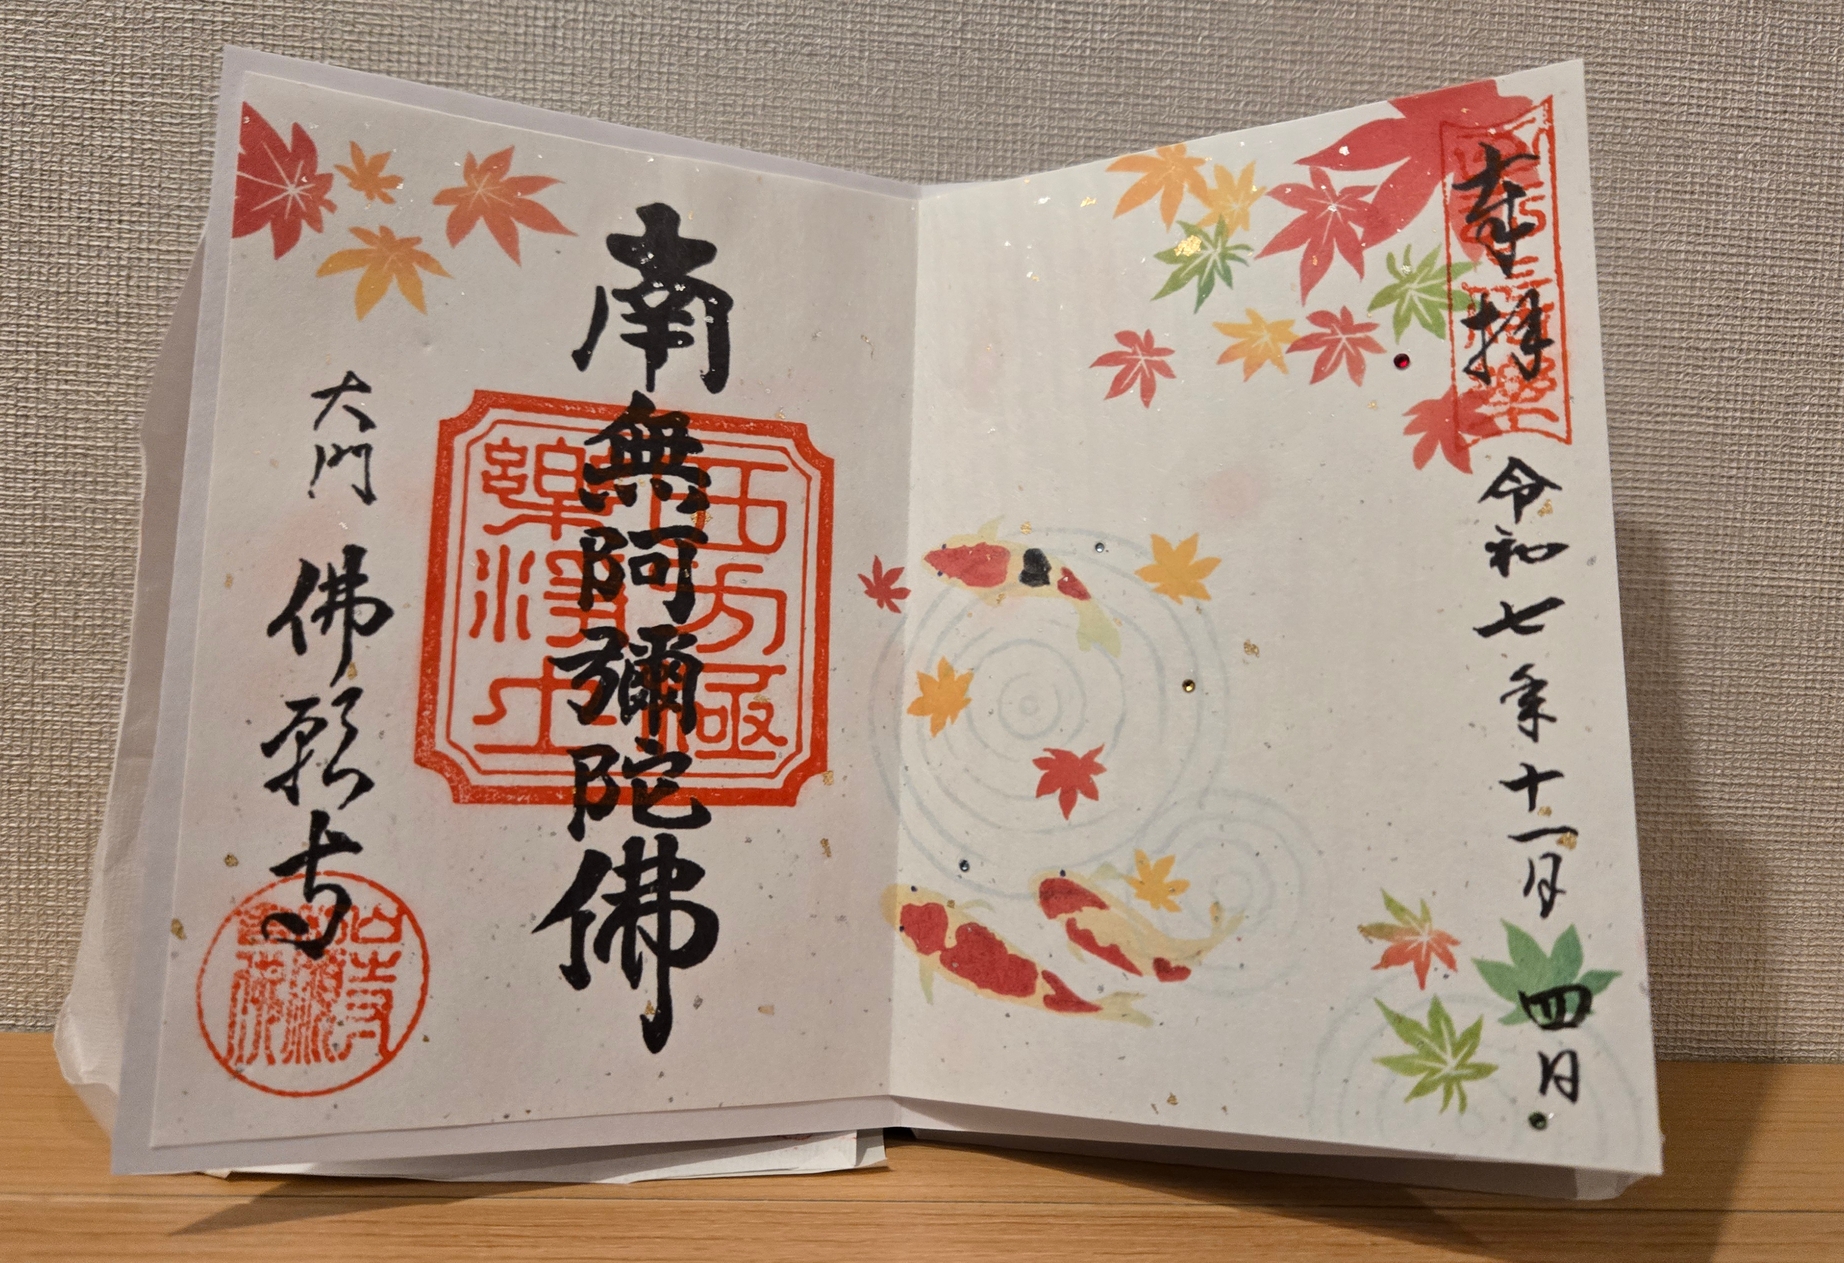 奉拝
令和七年十一月四日
南無阿彌陀佛
西方極
樂浄土
大門 佛願寺